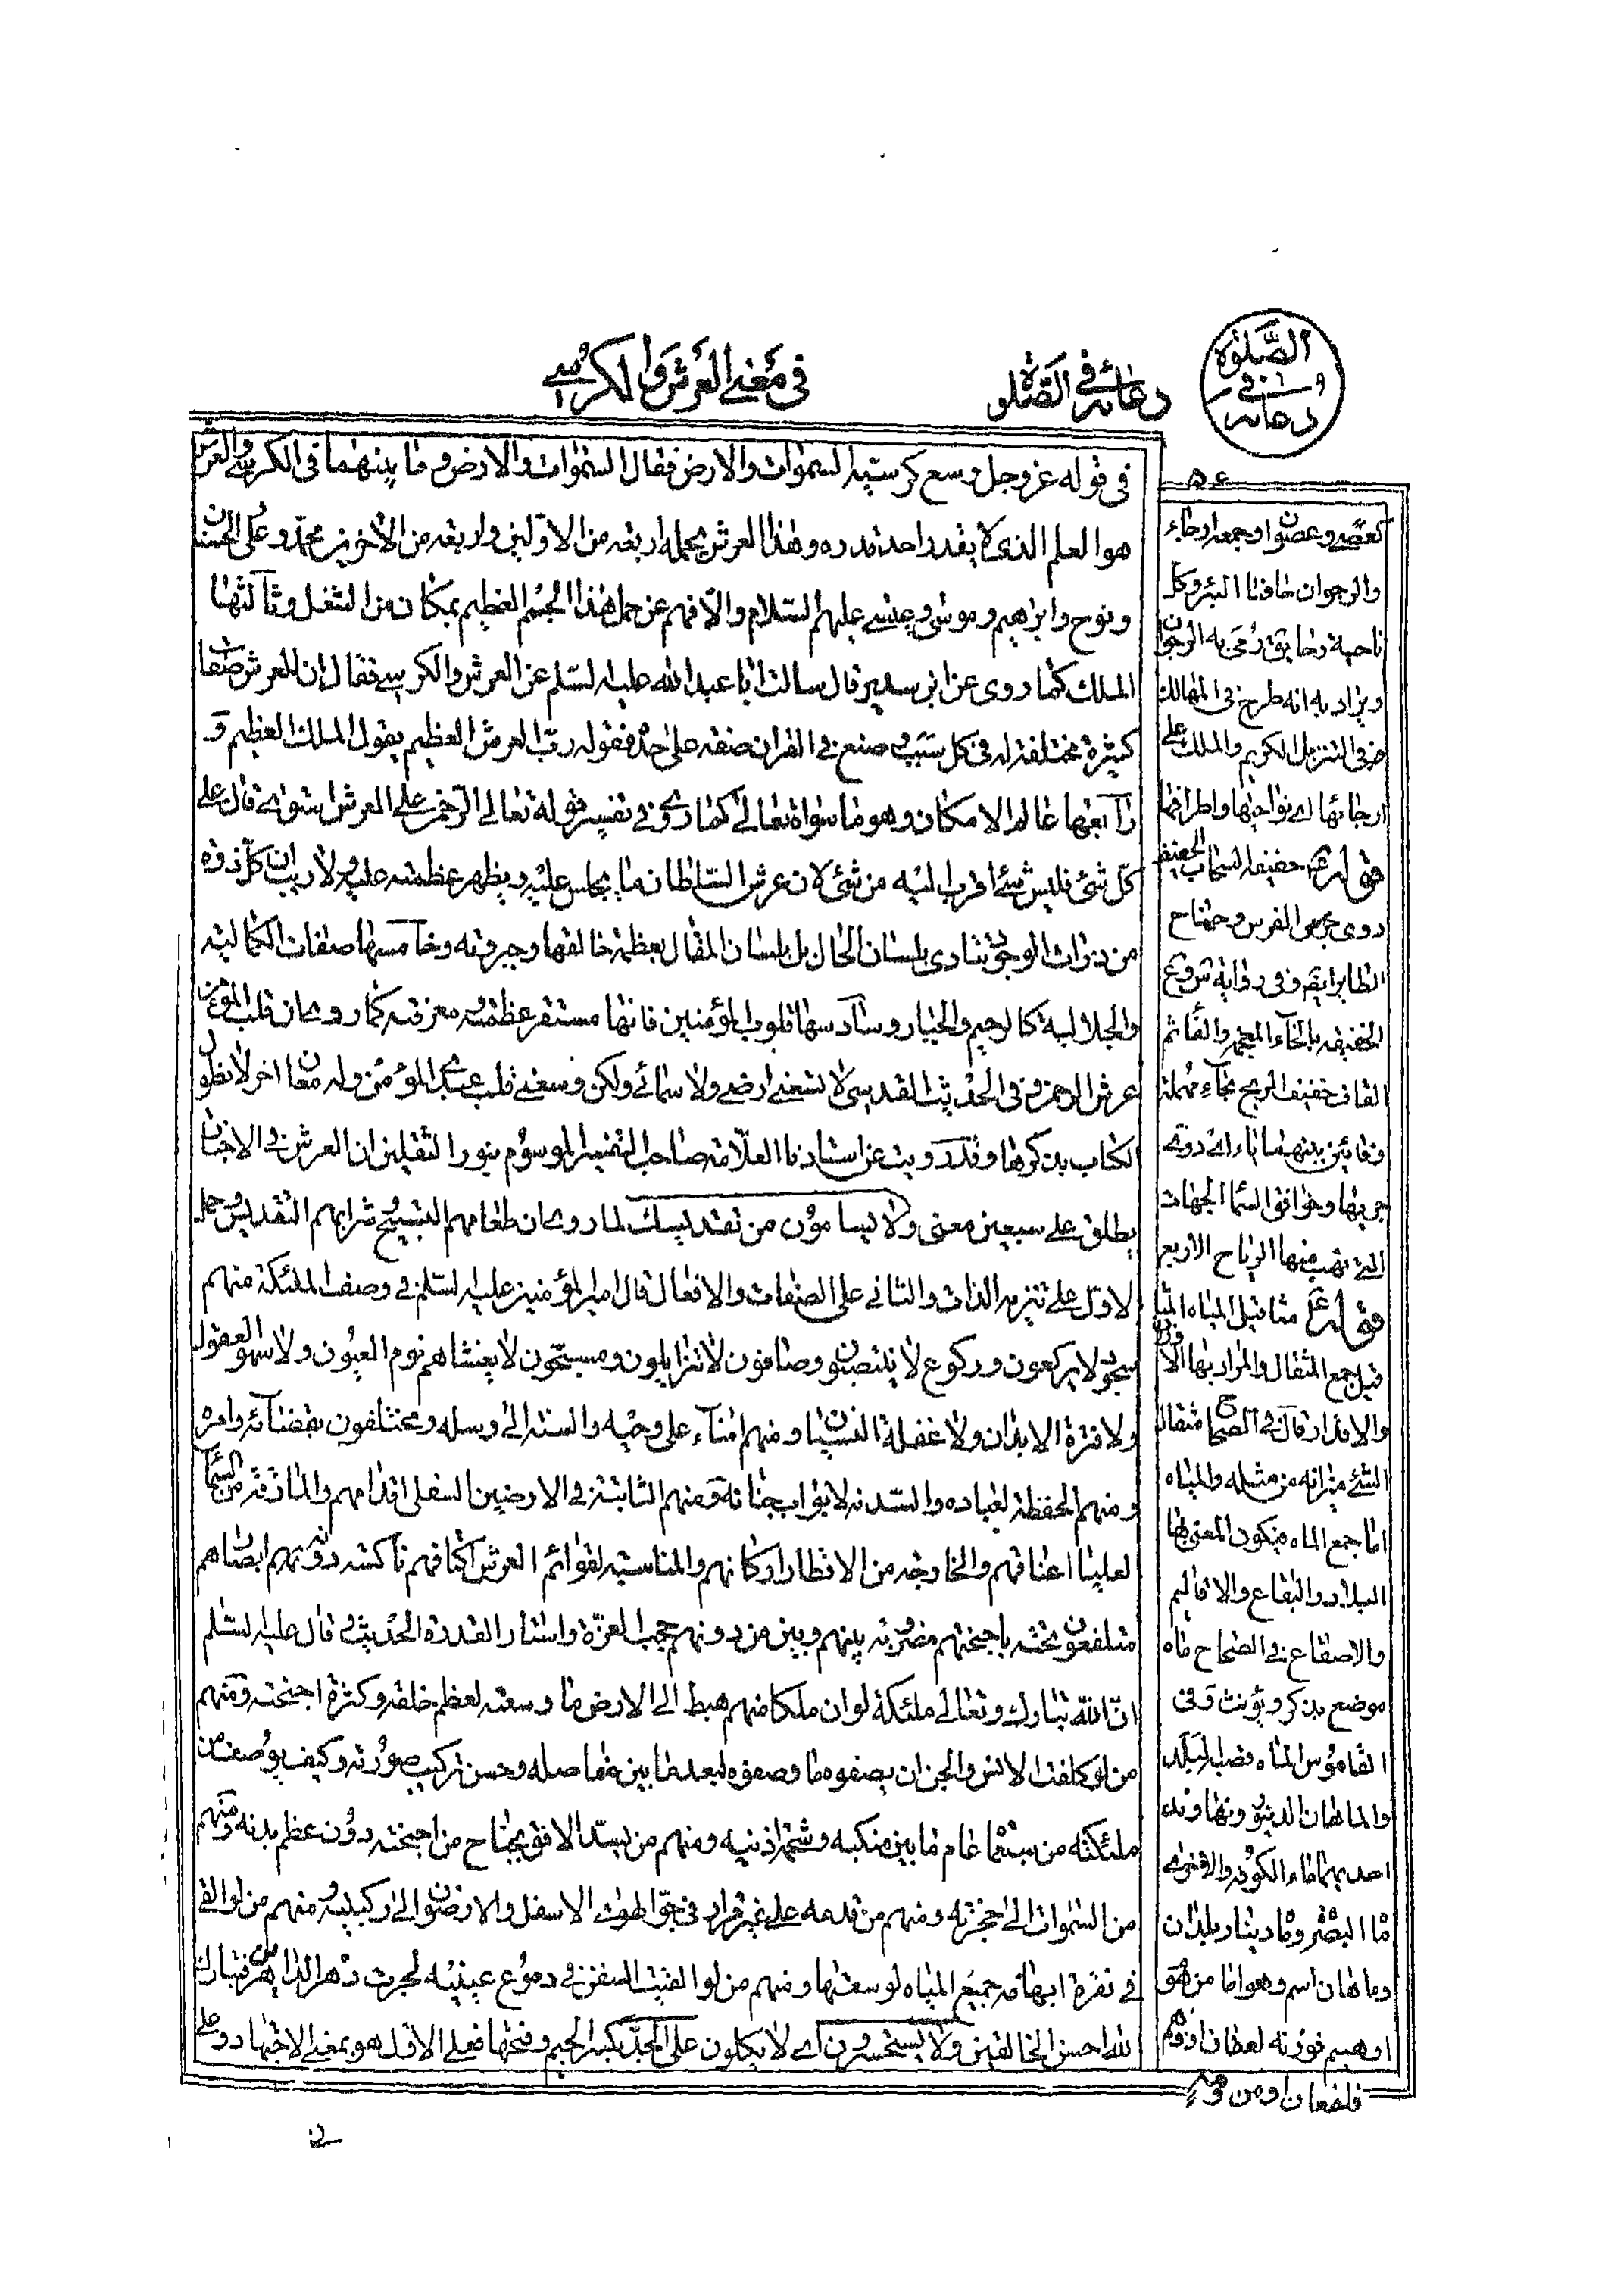 الصلوة
و
في
دعائه
دعائه في الصلوة
في معنى العرش والكرسي
في قوله عز وجل وسع كرسيه السموات والارض فقال السموات والارض وما بينهما في الكرسي والعرش
هو العلم الذي لا يقدر احد قدره وهذا العرش يحمله اربعة من الاولين واربعة من الآخرين محمد وعلي والحسنان
ونوح وابراهيم وموسى وعيسى عليهم السلام والا فهم عن حمل هذا الجسم العظيم بمكان من الشغل وثالثها
الملك كما روي عن ابن سدير قال سالت ابا عبد الله عليه السلم عن العرش والكرسي فقال ان للعرش صفات
كثيرة مختلفة له في كل سبب وصنع في القران صفة على حدة فقوله رب العرش العظيم يقول الملك العظيم و
رابعها عالم الامكان وهو ما سواه تعالى كما روي في تفسير قوله تعالى الرحمن على العرش استوى قال على
كل شئ فليس شئ اقرب اليه من شئ لان عرش السلطان ما يجلس عليه ويظهر عظمته عليه ولا ريب ان كل ذرة
من ذرات الوجود تنادي بلسان الحال بل بلسان المقال بعظمة خالقها وجبروته وخامسها صفات الكمالية
والجلالية كالرحيم والجبار وسادسها قلوب المؤمنين فانها مستقر عظمته ومعرفته كما روي ان قلب المؤمن
عرش الرحمن وفي الحديث القدسي لا تسعني ارضي ولا سمائي ولكن وسعني قلب عبدي المؤمن وله معان اخر لا نطول
الكتاب بذكرها وقد رويت عن استادنا العلامة صاحب التفسير الموسوم بنور الثقلين ان العرش في الاخبار
يطلق على سبعين معنى ولا يسأمون من تقديسك لما روي ان طعامهم التسبيح وشرابهم التقديس وحمل
الاول على تنزيه الذات والثاني على الصفات والافعال قال امير المؤمنين عليه السلم في وصف الملئكة منهم
سجود لا يركعون وركوع لا ينتصبون وصافون لا يتزايلون ومسبحون لا يغشاهم نوم العيون ولا سهو العقول
ولا فترة الابدان ولا غفلة النسيان ومنهم امناء على وحيه والسنة الى رسله ومختلفون بقضائه وامره
ومنهم الحفظة لعباده والسدنة لابواب جنانه ومنهم الثابتة في الارضين السفلى اقدامهم والمارقة من السماء
العليا اعناقهم والخارجة من الاقطار اركانهم والمناسبة لقوائم العرش اكتافهم ناكسة دونه ابصارهم
متلفعون تحته باجنحتهم مضروبة بينهم وبين من دونهم حجب العزة واستار القدرة الحديث وقال عليه السلم
ان الله تبارك وتعالى ملئكة لو ان ملكا منهم هبط الى الارض ما وسعته لعظم خلقه وكثرة اجنحته ومنهم
من لو كلفت الانس والجن ان يصفوه ما وصفوه لبعد ما بين مفاصله وحسن تركيب صورته وكيف يوصف من
ملئكته من سبعمائة عام ما بين منكبه وشحمة اذنيه ومنهم من يسد الافق بجناح من اجنحته دون عظم بدنه ومنهم
من السموات الى حجزته ومنهم من قدمه على غير قرار في جو الهواء الاسفل والارضون الى ركبتيه ومنهم من لو القي
في نقرة ابهامه جميع المياه لوسعتها ومنهم من لو القيت السفن في دموع عينيه لجرت دهر الداهرين فتبارك
الله احسن الخالقين ولا يستحسرون اي لا يكلون على الجد بكسر الجيم وفتحها فعلى الاول هو بمعنى الاجتهاد وعلى
٥٤
كعصى وعصوان وجمعه ارجاء
والرجوان حافتا البئر وكل
ناحية رجا يق رمي به الرجوان
ويراد به انه طرح في المهالك
من في التنزيل الكريم والملك على
ارجائها اي نواحيها واطرافها
قوله ع حفيفه السحاب الحفيف
دوي جري الفرس وجناح
الطاير ايضا وفي رواية ش وع
الخفيفة بالخاء المعجمة والفاء ثم
القاف خفيف الريح بخاء مهملة
وفائين بينهما ياء اي دوية
جريها وخوافق السماء الجهات
التي تهب منها الرياح الاربع
قوله ع مثاقيل المياه المثاقيل
قيل جمع المثقال والمراد بها الاوزان
والاقدار قال في الصحاح مثقال
الشئ ميزانه من مثله والمياه
اما جمع الماء فيكون المعني بها
البلاد والبقاع والاقاليم
والاصقاع في الصحاح ماه
موضع يذكر ويؤنث وفي
القاموس الماه قصبة البلد
والماهان الدينور ونهاوند
احديهما ماه الكوفة والاخرى
ماه البصرة وماه دينار بلدان
وماهان اسم وهو اما من هوم
او هيم فوزنه لعفان او وهم
فلفعان او من ومه